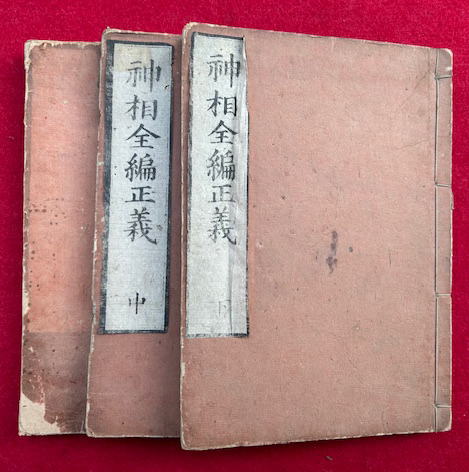 神相全編正義
神相全編正義
中